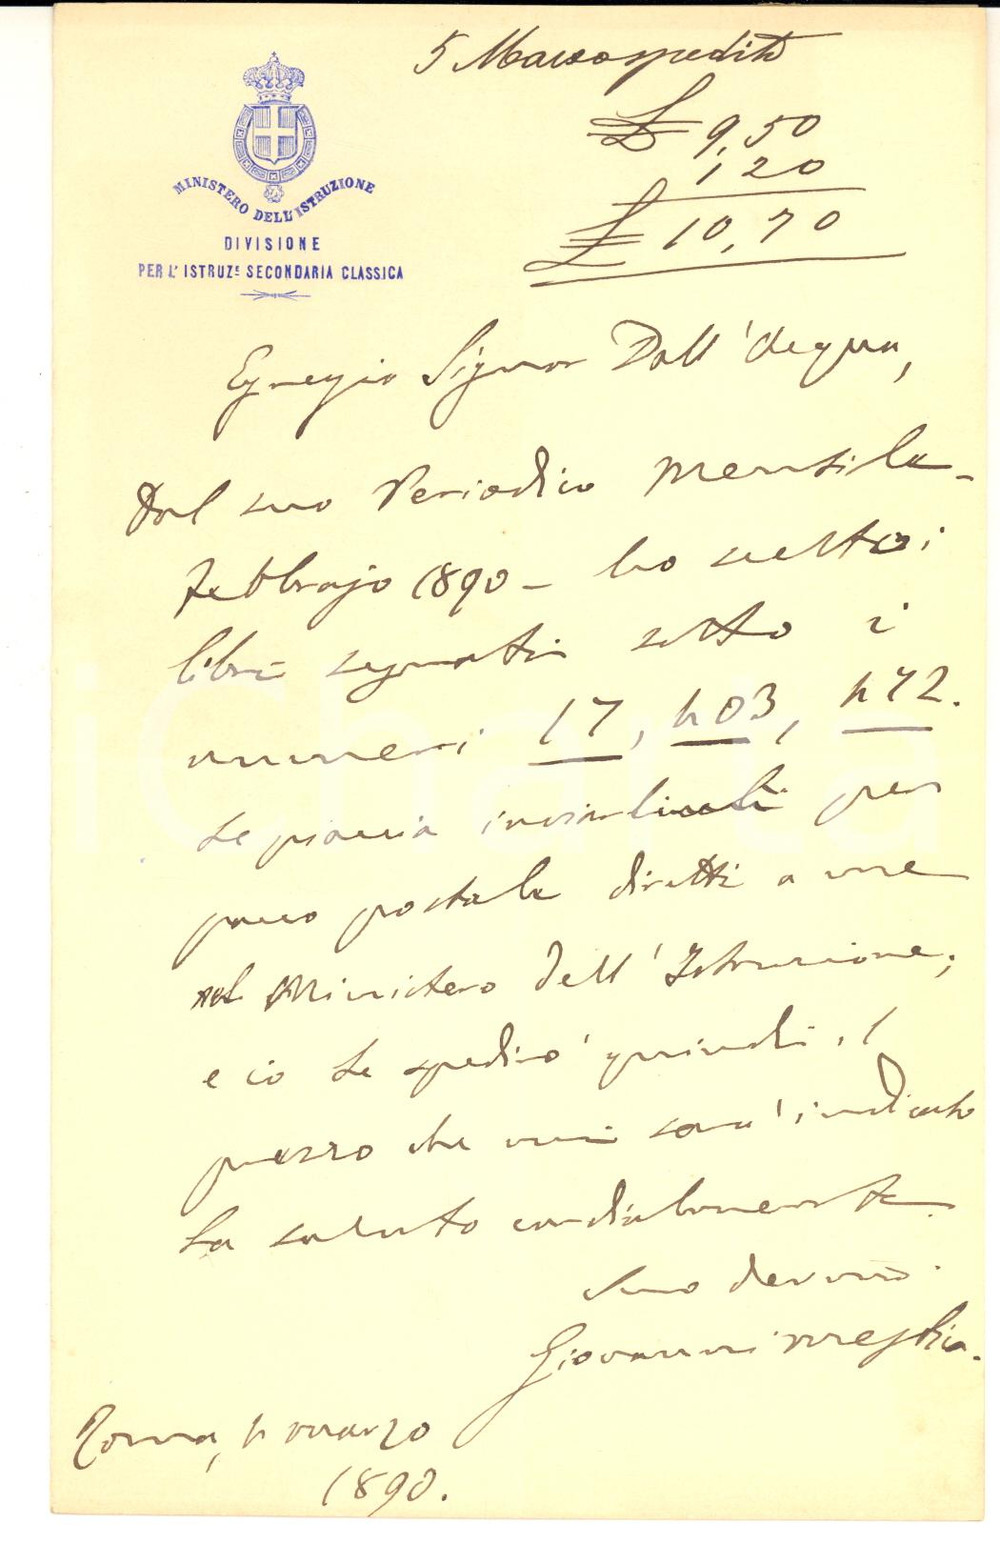 5 Marzo spedito
£ 9,50
1 20
£ 10,70
MINISTERO DELL'ISTRUZIONE
DIVISIONE
PER L'ISTRUZE SECONDARIA CLASSICA
Egregio Signor Dall'Acqua,
Dal suo Periodico mensile -
Febbrajo 1890 - ho scelto i
libri segnati sotto i
numeri 17, 403, 472.
Le piaccia per
pacco postale diretti a me
nel Ministero dell'Istruzione;
e io Le spedirò quindi il
prezzo che mi sarà indicato
La saluto cordialmente
Suo
Giovanni
Roma, 4 marzo
1890.
iCharta